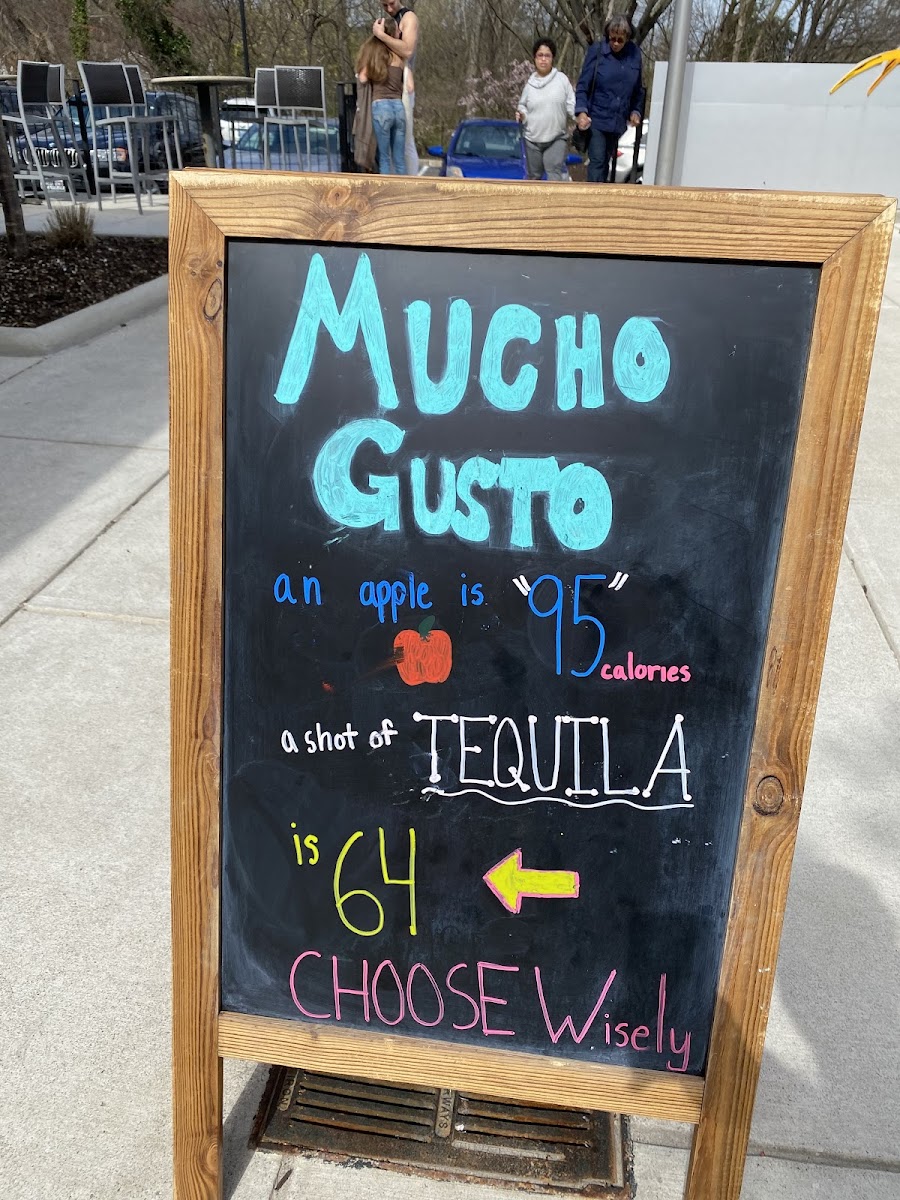 MUCHO
GUSTO
an apple is "95"
calories
a shot of TEQUILA
is 64
CHOOSE Wisely